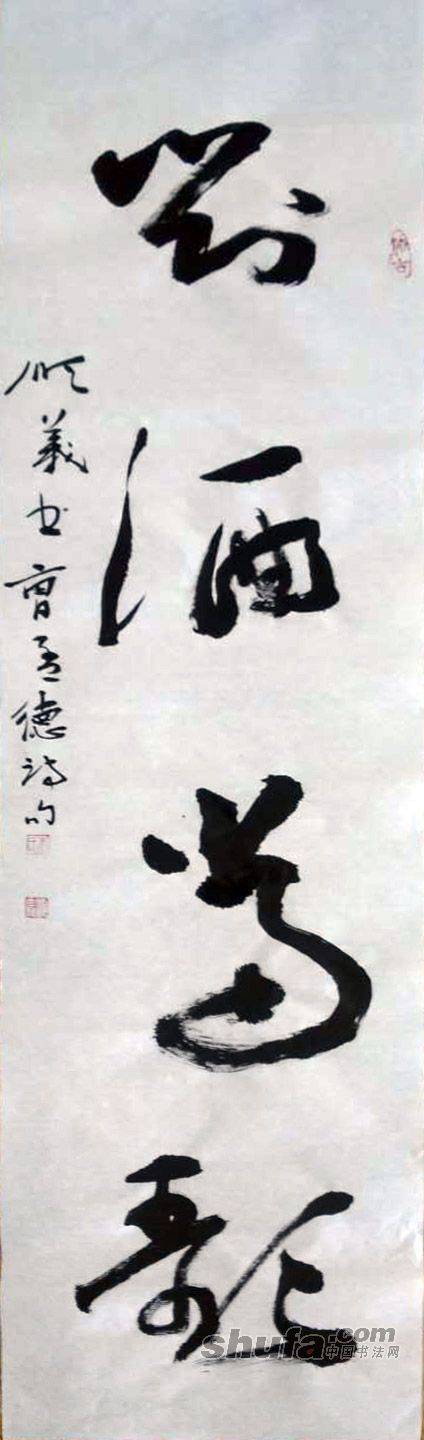 對酒當歌
順義書曹孟德詩句
shufa.com
中国书法网